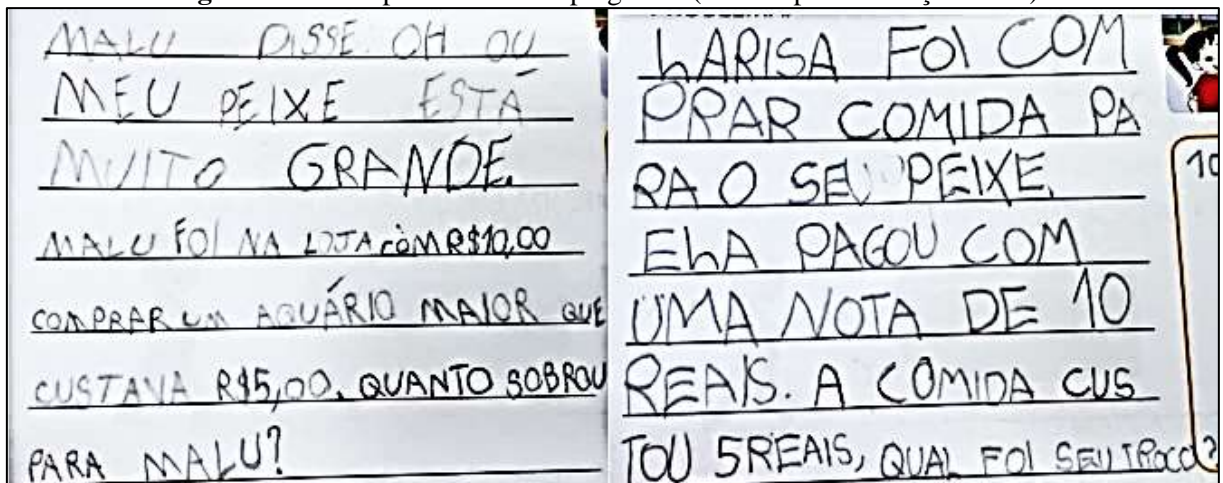 MALU DISSE OH OU
MEU PEIXE ESTÁ
MUITO GRANDE.
MALU FOI NA LOJA COM R$10,00
COMPRAR UM AQUÁRIO MAIOR QUE
CUSTAVA R$5,00. QUANTO SOBROU
PARA MALU?
LARISA FOI COM
PRAR COMIDA PA
RA O SEU PEIXE.
ELA PAGOU COM
UMA NOTA DE 10
REAIS. A COMIDA CUS
TOU 5 REAIS, QUAL FOI SEU TROCO?
10